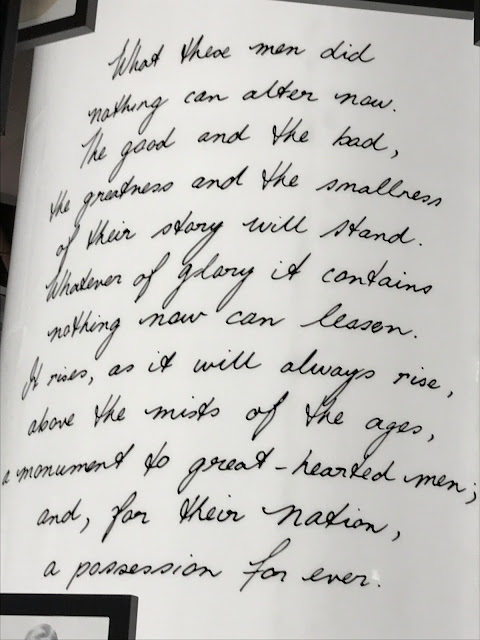 What these men did
nothing can alter now.
The good and the bad,
the greatness and the smallness
of their story will stand.
Whatever of glory it contains
nothing now can lessen.
It rises, as it will always rise,
above the mists of the ages,
a monument to great-hearted men;
and, for their nation,
a possession for ever.